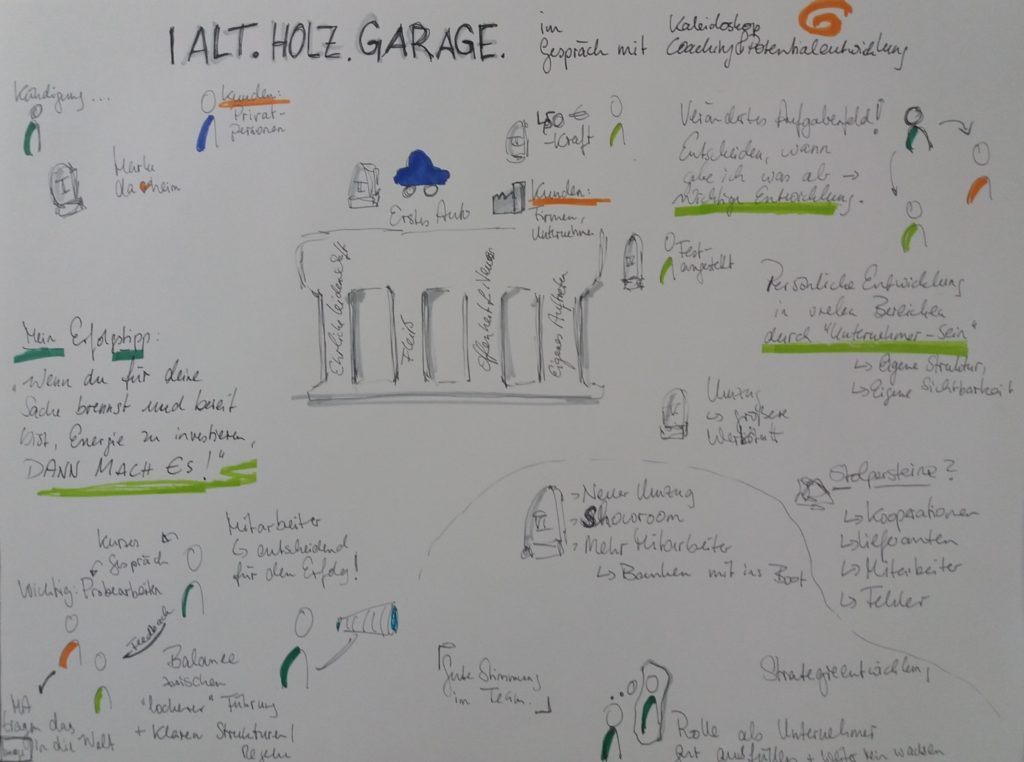 | ALT. HOLZ. GARAGE.
im
Gespräch mit
Kaleidoskop
Coaching+Potentialentwicklung
Kündigung...
Kunden:
Privat-
personen
Marke
daheim
I
II
Erstes Auto
450 €
-Kraft
Kunden:
Firmen,
Unternehmen
Verändertes Aufgabenfeld!
Entscheiden, wann
gebe ich was ab →
wichtige Entwicklung.
Fest-
angestellt
Persönliche Entwicklung
in vielen Bereichen
durch "Unternehmer-Sein"
↳ eigene Struktur,
↳ eigene Sichtbarkeit
Ehrliche Leidenschaft
Fleiß
Offenheit f. Neues
Eigenes Auftreten
Mein Erfolgstipp:
"Wenn du für deine
Sache brennst und bereit
bist, Energie zu investieren,
DANN MACH ES!"
Umzug
↳ größere
Werkstatt
VI
> Neuer Umzug
> Showroom
> Mehr Mitarbeiter
↳ Banken mit ins Boot
Stolpersteine?
↳ Kooperationen
↳ Lieferanten
↳ Mitarbeiter
↳ Fehler
Kurzes
Gespräch
Wichtig: Probearbeiten
Feedback
Mitarbeiter
↳ entscheidend
für den Erfolg!
MA
tragen das
in die Welt
Balance
zwischen
"lockerer" Führung
+ klaren Strukturen/
Regeln
"Gute Stimmung
im Team."
Strategieentwicklung
Rolle als Unternehmer
gut ausfüllen + weiter rein wachsen